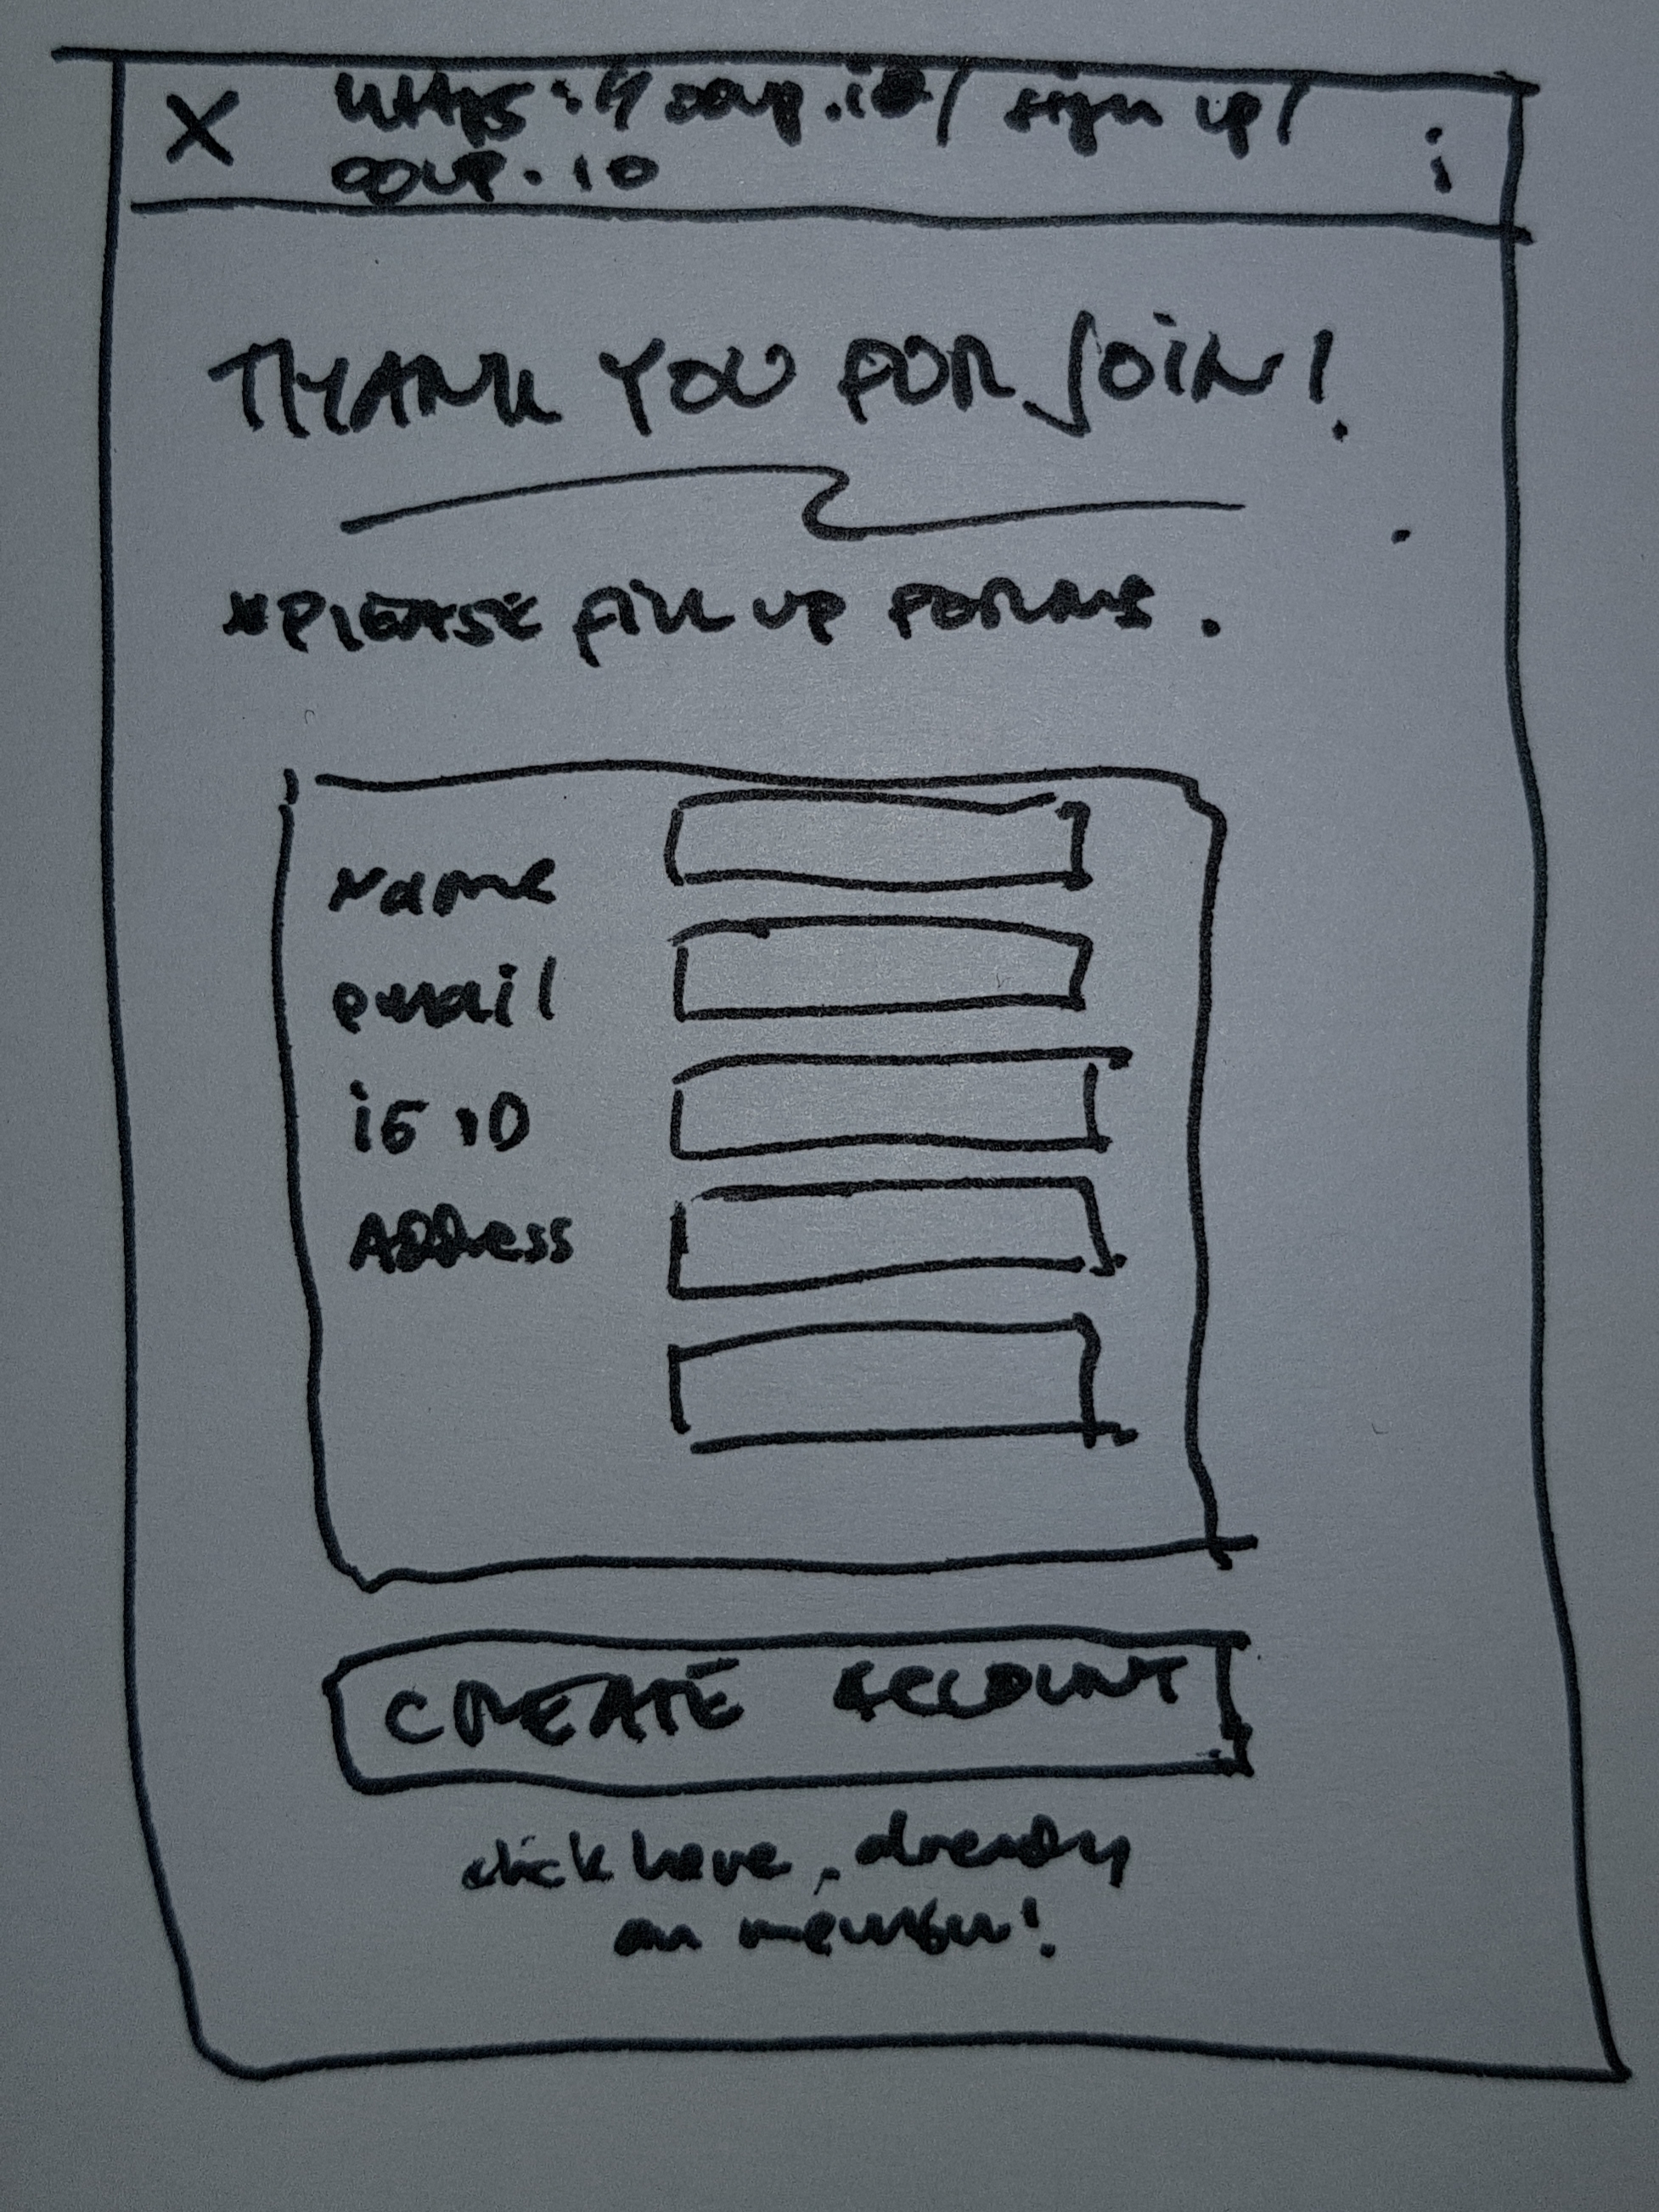 X https:// .io/ sign up/
THANK YOU FOR JOIN!
*PLEASE FILL UP FORMS.
Name
email
iG iD
ADDRess
CREATE ACCOUNT
click here, already
an member!